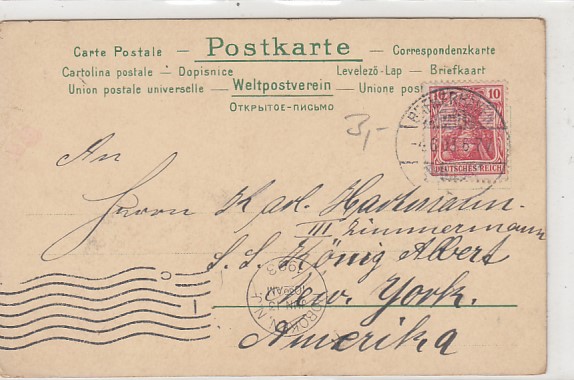 Carte Postale — Postkarte — Correspondenzkarte
Cartolina postale — Dopisnice Levelező-Lap — Briefkaart
Union postale universelle — Weltpostverein — Unione post
ОТКРЫТОЕ-ПИСЬМО
3,-
10 10
DEUTSCHES REICH
-4.6.03. 6-7
An
Herrn Karl Hartmann
III Zimmermann
S. S. König Albert
New York.
Amerika
HOBOKEN, N.J.
JUN 13
AM
1903
C
I